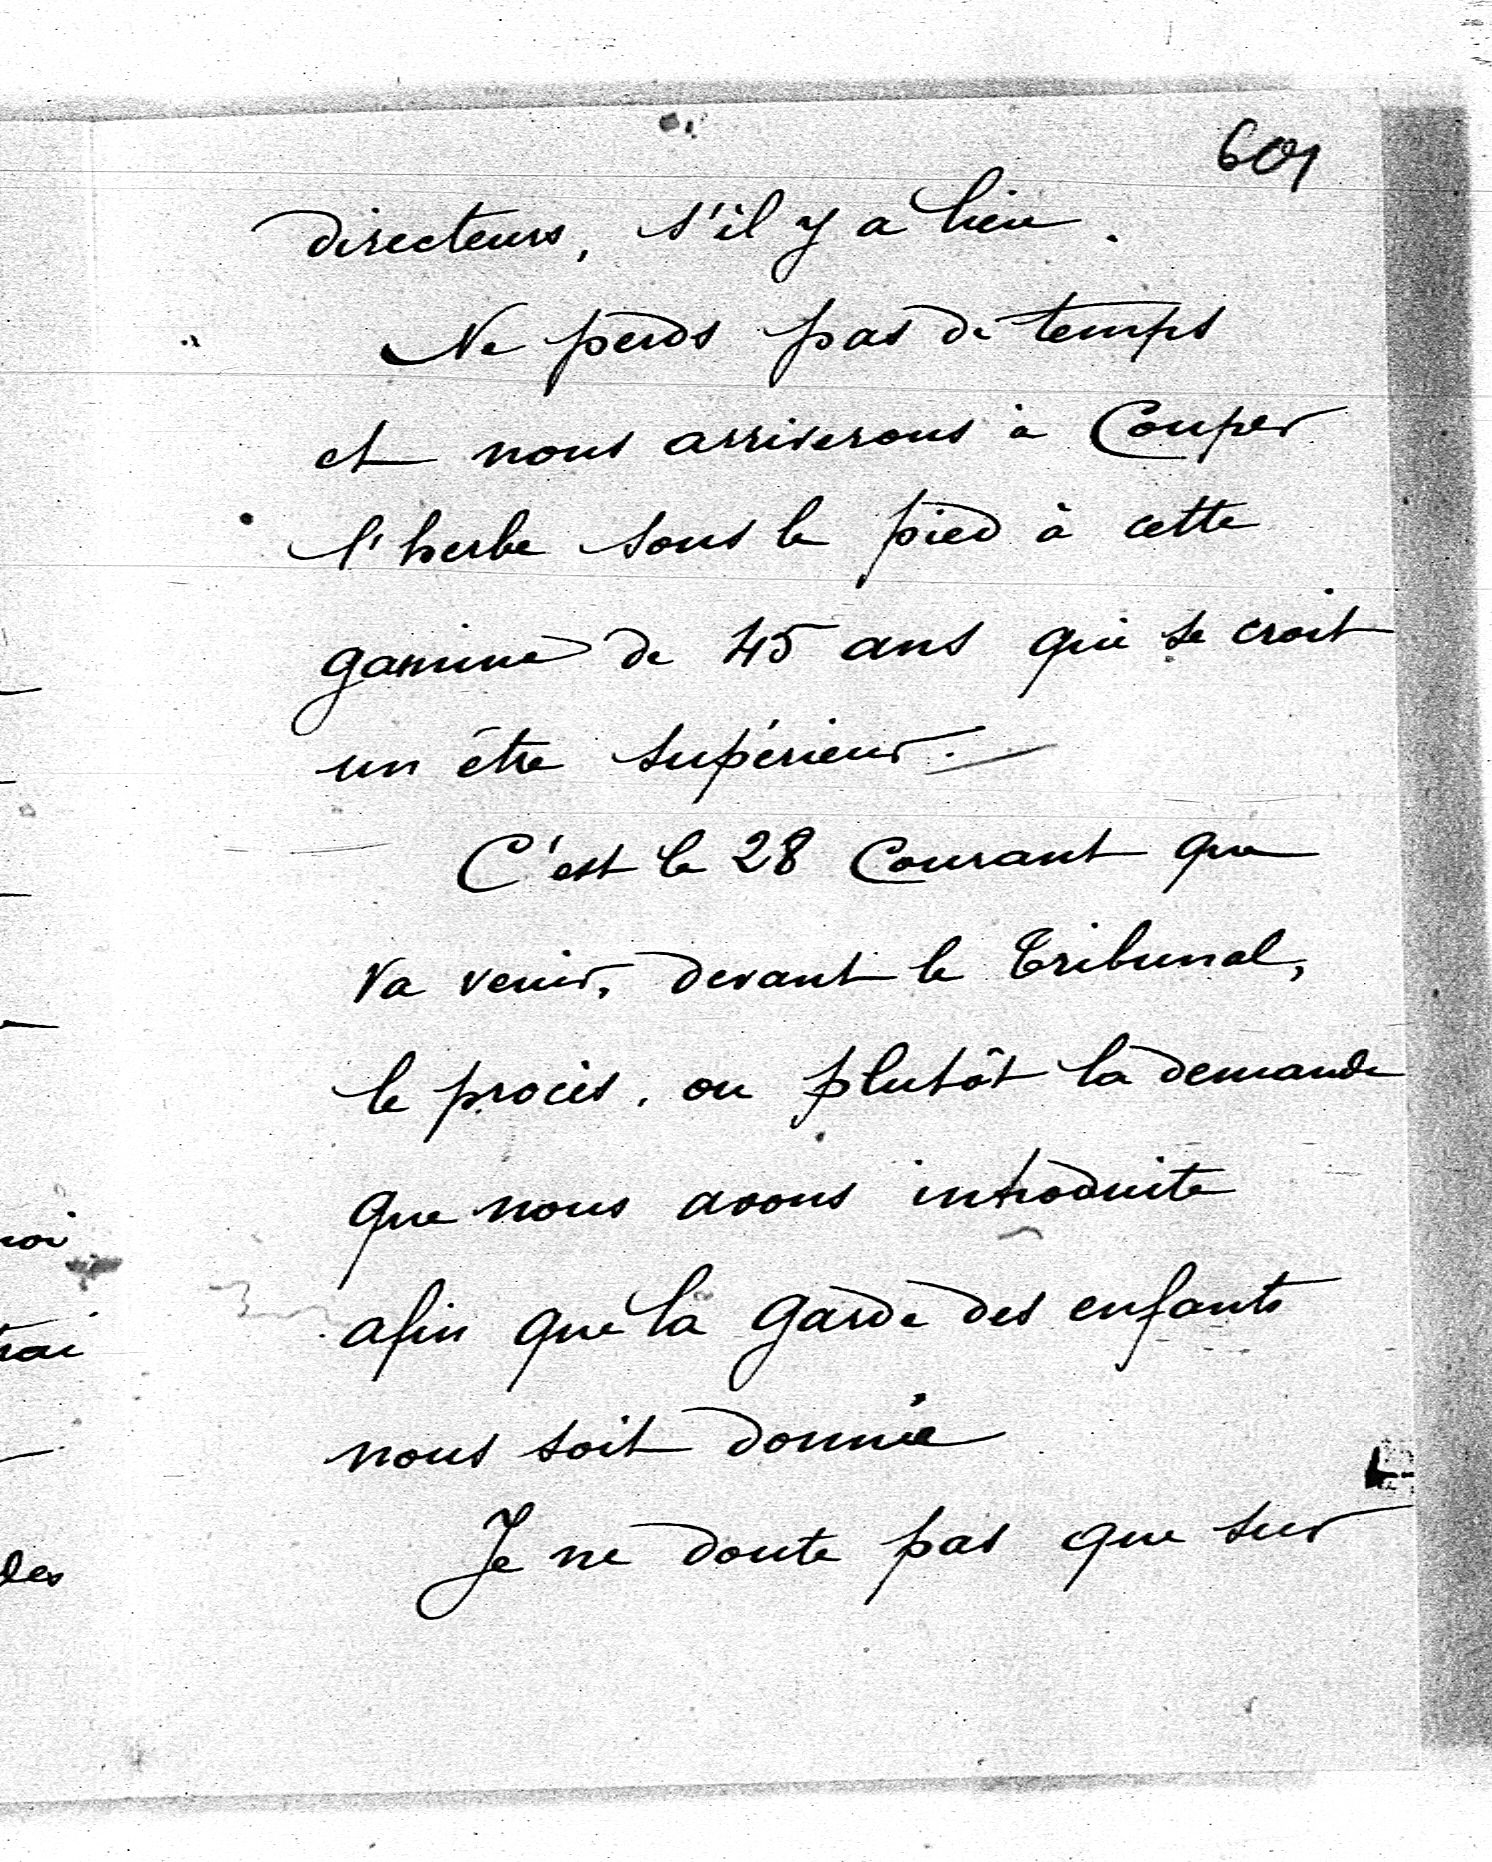 601
directeurs, s'il y a lieu.
Ne perds pas de temps
et nous arriverons à Couper
l'herbe sous le pied à cette
gamine de 45 ans qui se croit
un être supérieur. _
C'est le 28 Courant que
va venir, devant le Tribunal,
le procès, ou plutôt la demande
que nous avons introduite
afin que la garde des enfants
nous soit donnée
Je ne doute pas que sur